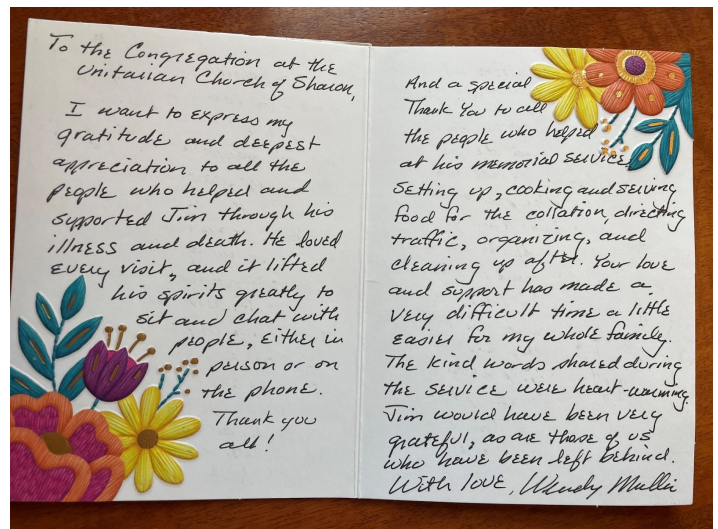 To the Congregation at the
Unitarian Church of Sharon,
I want to express my
gratitude and deepest
appreciation to all the
people who helped and
supported Jim through his
illness and death. He loved
every visit, and it lifted
his spirits greatly to
sit and chat with
people, either in
person or on
the phone.
Thank you
all!
And a special
Thank You to all
the people who helped
at his memorial service,
setting up, cooking and serving
food for the collation, directing
traffic, organizing, and
cleaning up after. Your love
and support has made a
very difficult time a little
easier for my whole family.
The kind words shared during
the service were heart-warming.
Jim would have been very
grateful, as are those of us
who have been left behind.
With love, Wendy